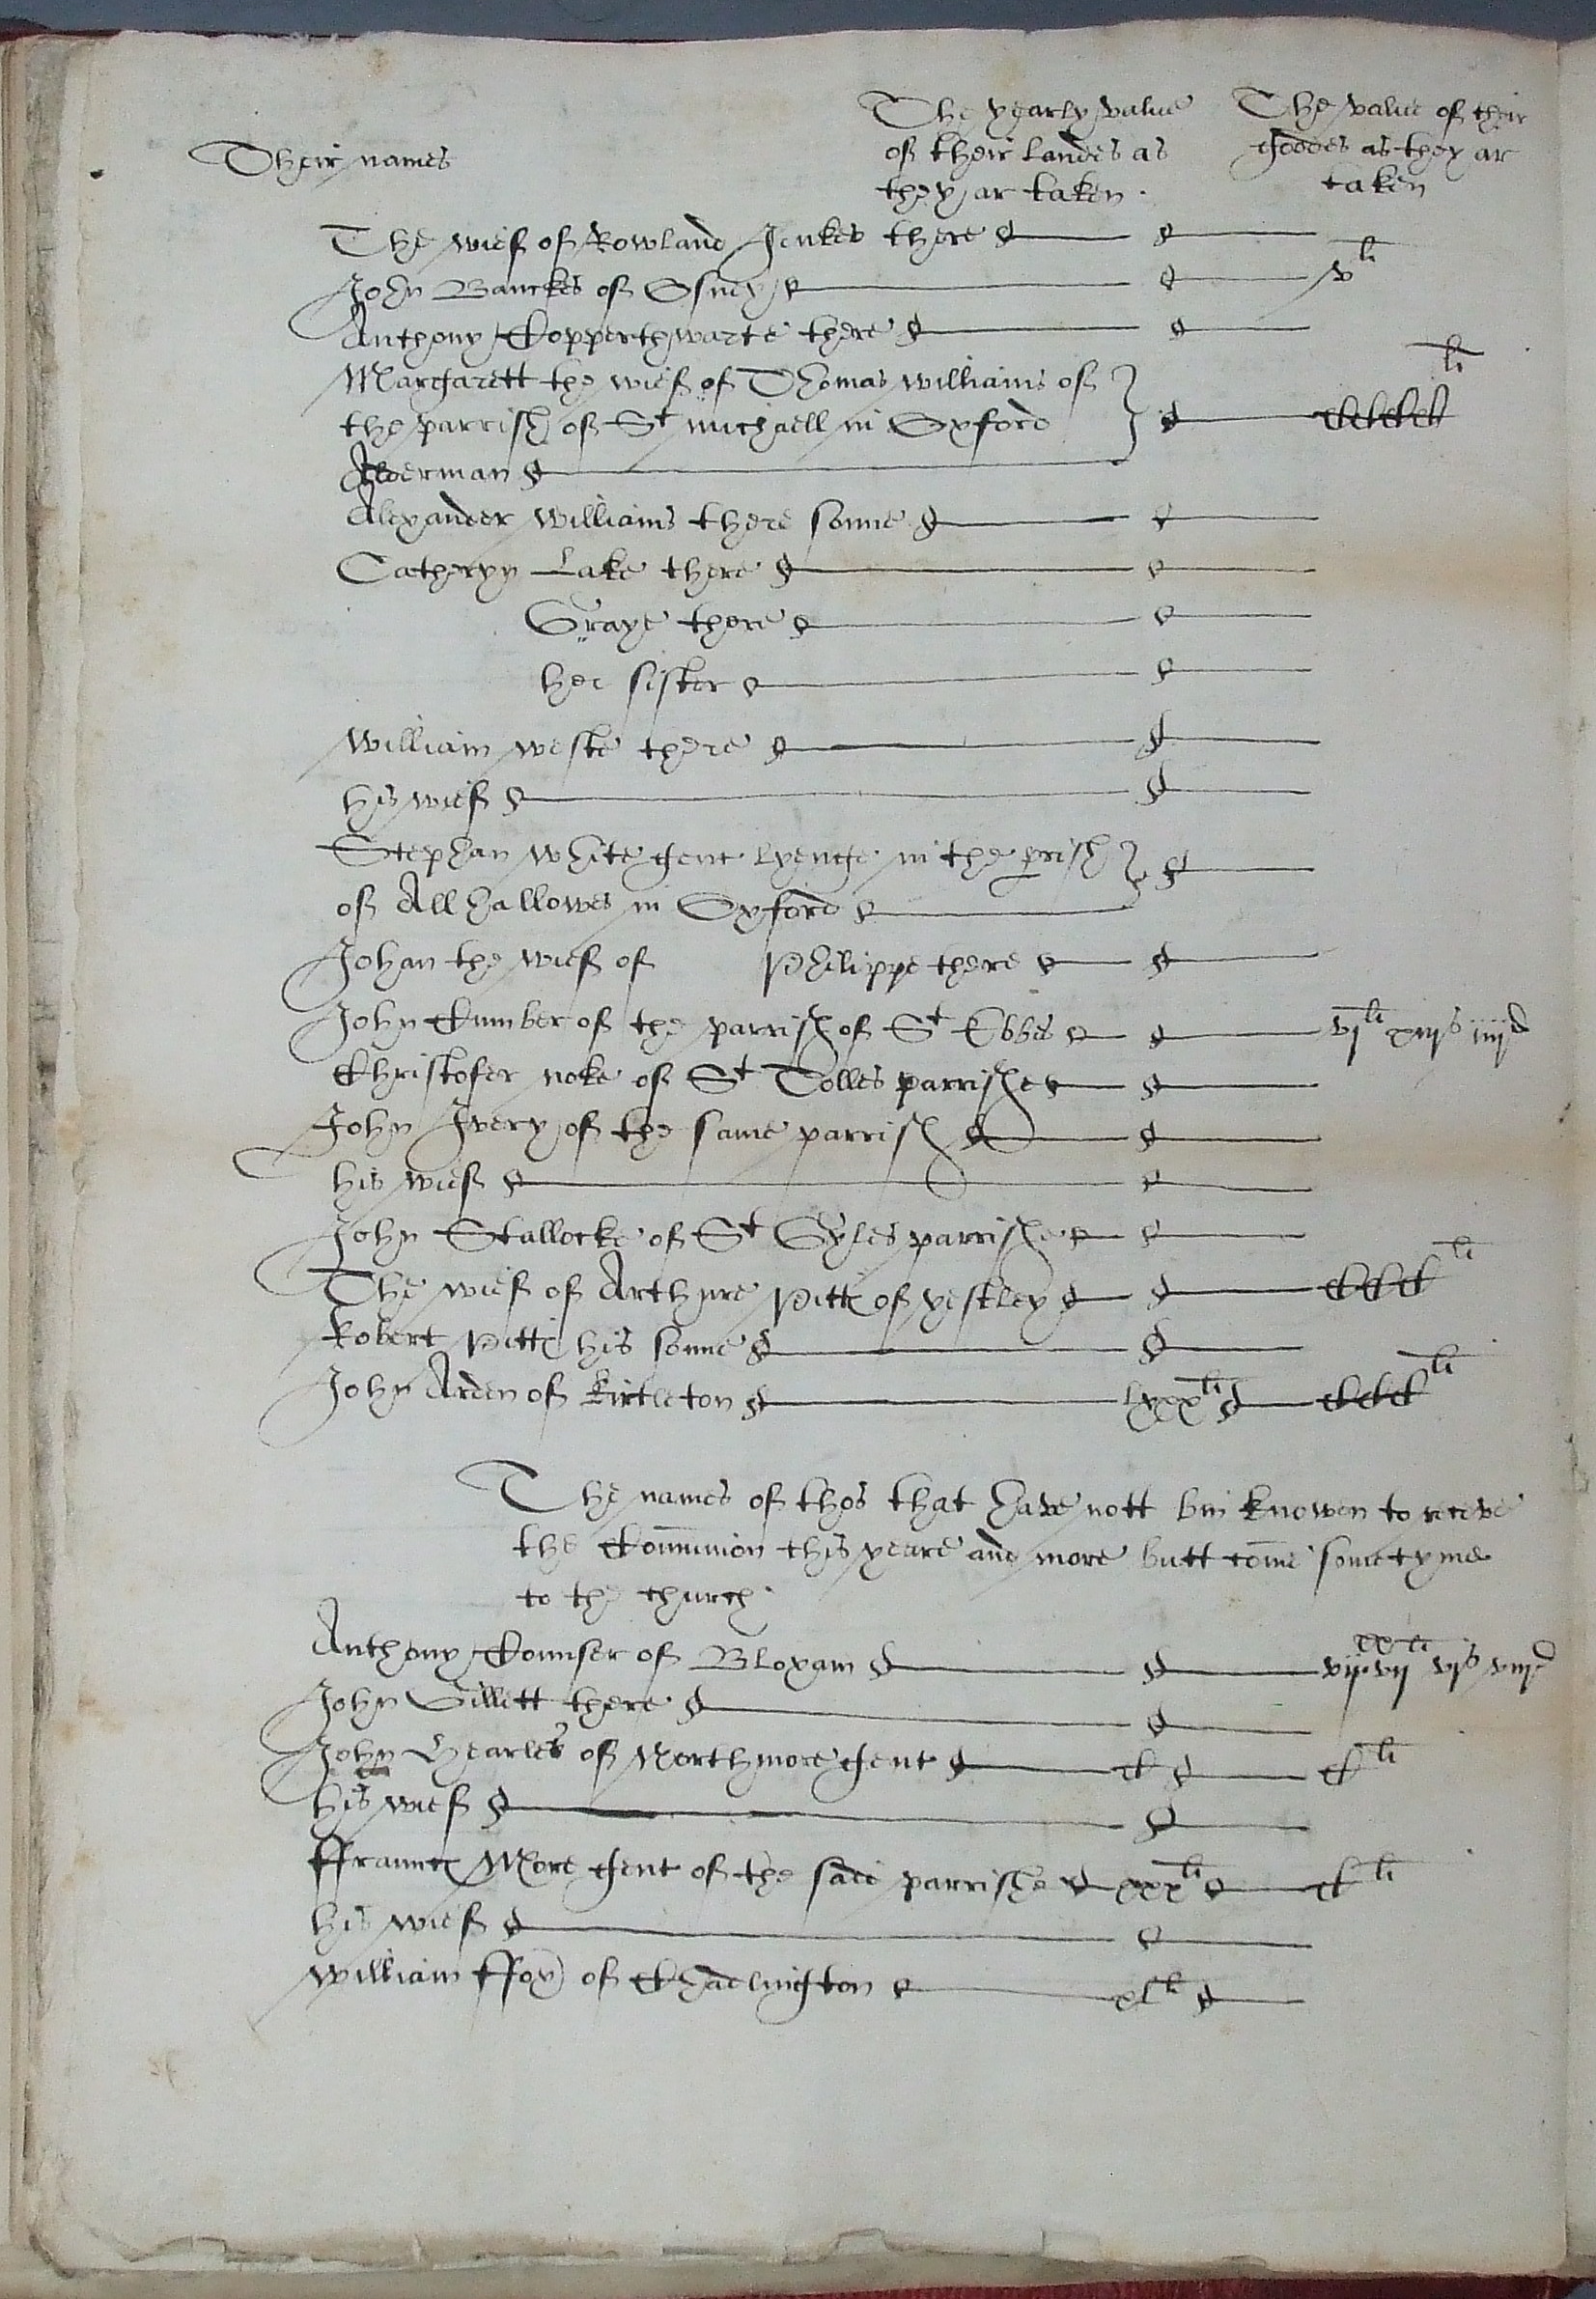 The yearly value The value of their
Their names of their landes as goodes as they ar
they ar taken . taken
The wief of Rowland Jenkes there
John Banckes of Osney vli
Anthony Copperthwarte there
Margarett the wief of Thomas Williams of li
the parrish of St michaell in Oxford CCCC
Alderman
Alexander Williams there sonne
Catheryn Lake there
Graye there
her sister
William weste there
his wief
Stephan White gent lyenge in the prish
of All hallowes in Oxford
Johan the wief of Philippe there
John Cumber of the parrish of St Ebbes vjli xiijs iiijd
Christofer noke of St Tolles parrishe
John Ivery of the same parrish
his wief
John Stallocke of St Gyles parrishe
The wief of Arthure Pitts of yestley CCCli
Robert Pitts his sonne
John Arden of Kirtleton lxxxli CCCli
The names of thos that have nott bin knowen to receve
the Communion this yeare and more butt come sometyme
to the church .
Anthony Counser of Bloxam vijxxvijli vjs viijd
John Gillett there
John Hearles of Northmore gent C Cli
his wief
ffraunces More gent of the said parrishe xxxli Cli
his wief
William ffox of Chadlington xlli